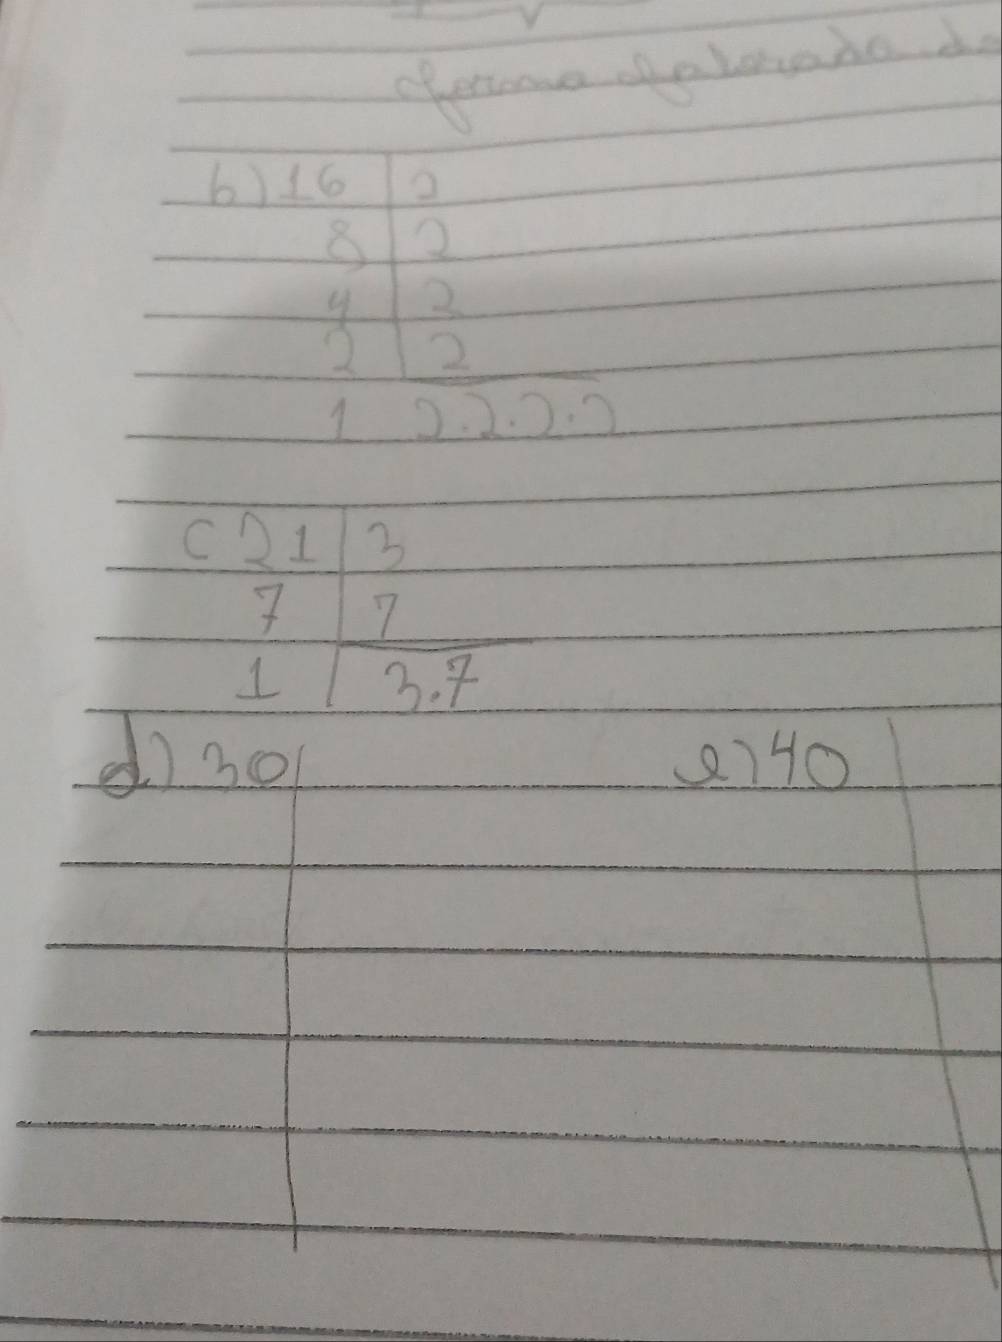 forma fatorada de
b) 16 | 2
8 | 2
4 | 2
2 | 2
1 2.2.2.2
c 21 | 3
7 | 7
1 | 3.7
d) 30 | e) 40 |